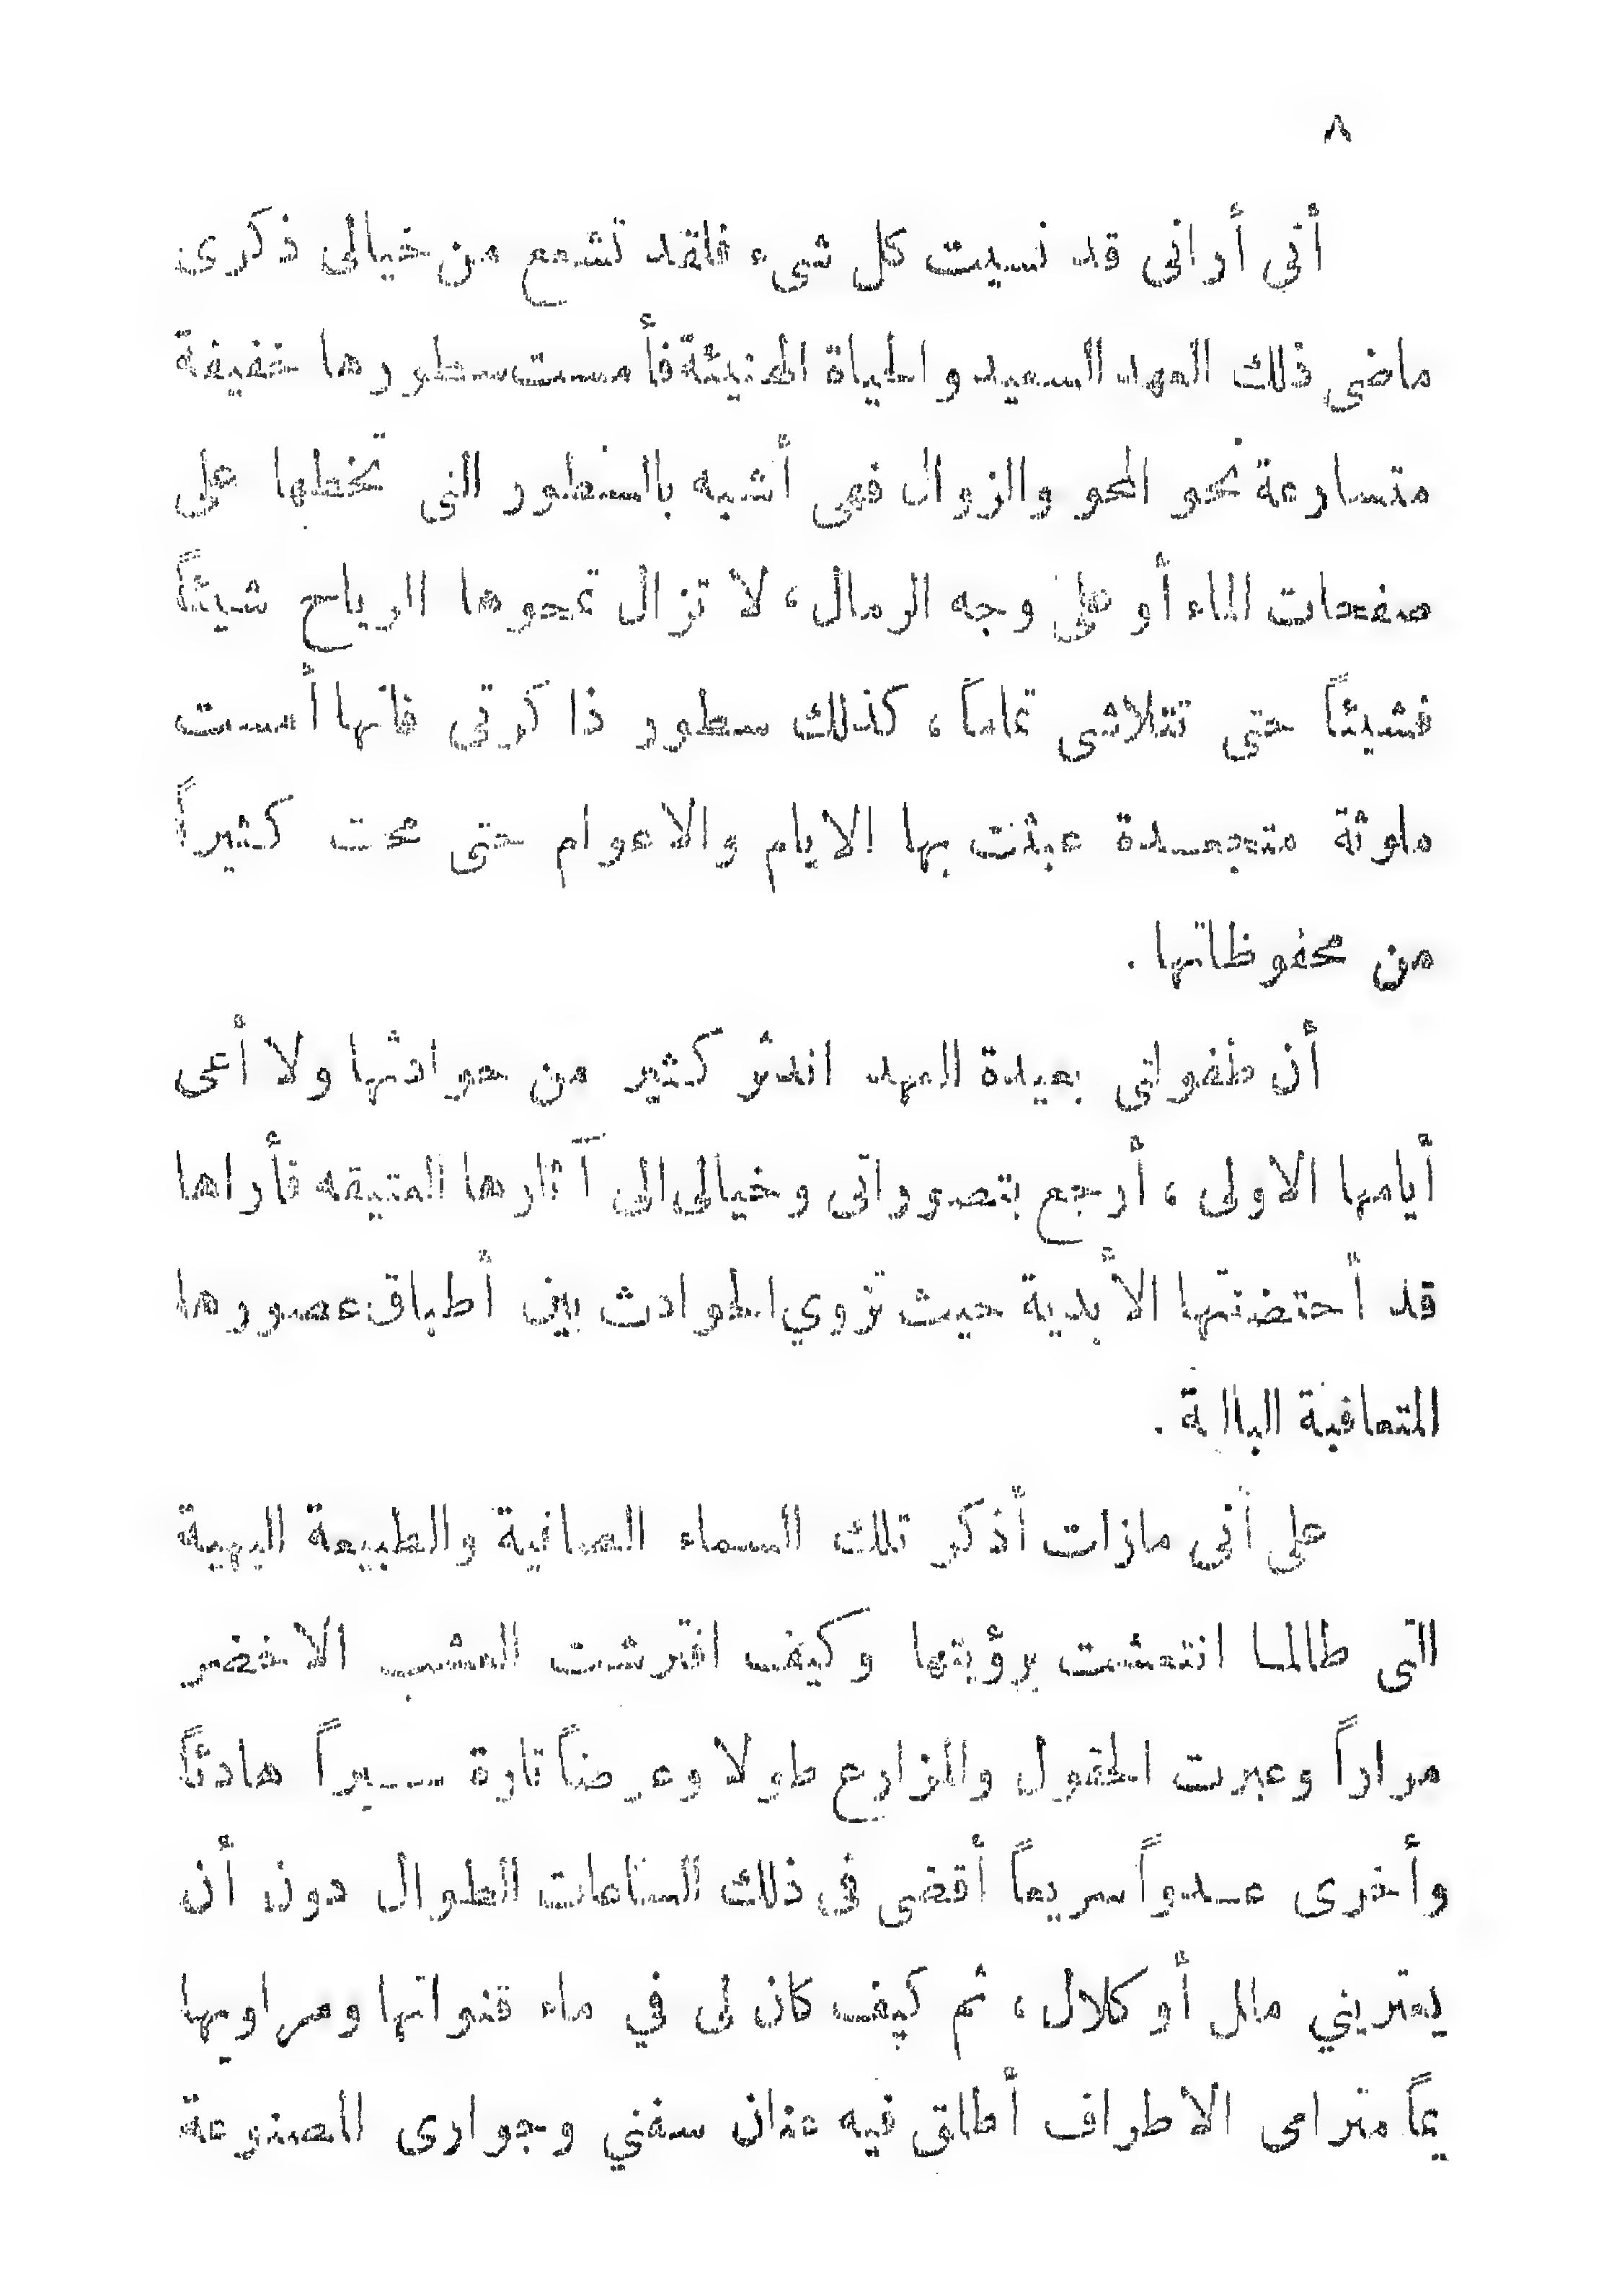 ٨
أنى أرانى قد نسيت كل شىء فلقد تشعع من خيالى ذكرى
ماضى ذلك العهد السعيد والحياة الهنيئة فأمست سطورها خفيفة
متسارعة نحو المحو والزوال فهى أشبه بالسطور التى تخطها على
صفحات الماء أو على وجه الرمال، لا تزال تمحوها الرياح شيئاً
فشيئاً حتى تتلاشى تماماً، كذلك سطور ذاكرتى فانها أمست
ملوثة متجعدة عبثت بها الايام والاعوام حتى محت كثيراً
من محفوظاتها .
أن طفولتى بعيدة العهد اندثر كثير من حوادثها ولا أعى
أيامها الاولى، أرجع بتصوراتى وخيالى الى آثارها العتيقه فأراها
قد أحتضنتها الأبدية حيث تزوي الحوادث بين أطباق عصورها
المتعاقبة البالية .
على أنى مازلت أذكر تلك السماء الصافية والطبيعة البهية
التى طالما انتعشت برؤيتها وكيف افترشت العشب الاخضر
مراراً وعبرت الحقول والمزارع طولا وعرضاً تارة سيراً هادئاً
وأخرى عدواً سريعاً أقضى فى ذلك الساعات الطوال دون أن
يعتريني ملل أو كلال، ثم كيف كان لى في ماء قنواتها ومراويها
يماً مترامى الاطراف أطلق فيه عنان سفني وجوارى المصنوعة